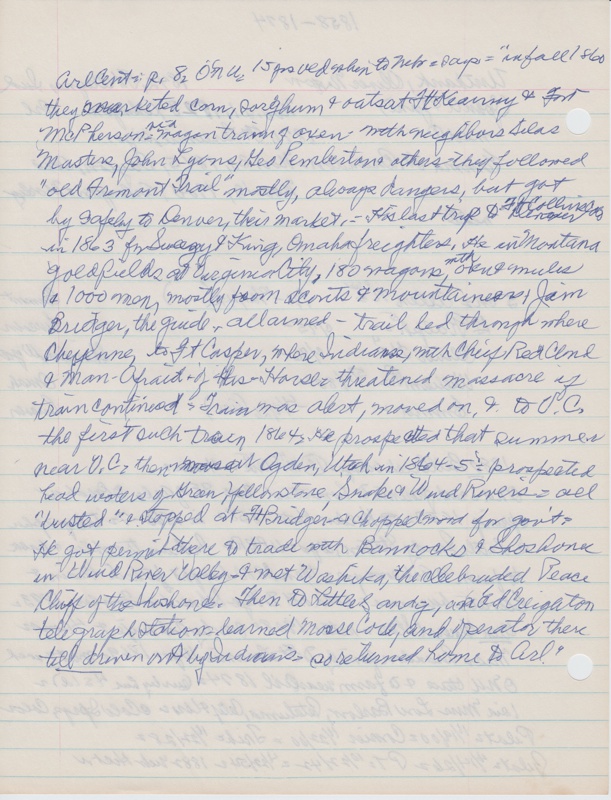 Arl Cent = p. 8, O'N U 15 yrs old when to Nebr = says = "in fall 1860
they marketed corn, sorghum & oats at Ft Kearny & Fort
McPherson = via wagon train of oxen - with neighbors Silas
Masters, John Lyons, Geo Pemberton & others - they followed
"old Fremont Trail" mostly, always dangers, but got
by safely to Denver, their market. = His last trip to Denver Ft Collins, Colo
in 1863 for Sweezy & King, Omaha freighters. He in Montana
goldfields at Virginia City, 180 wagons, with oxen & mules
& 1000 men, mostly from scouts & mountaineers, Jim
Bridger, the guide, all armed - trail led through where
Cheyenne, to Ft Casper, where Indians, with Chief Red Cloud
& Man-Afraid-of-His-Horses threatened massacre if
train continued = Train was alert, moved on, & to V.C.
the first such train 1864. He prospected that summer
near V.C. = then Ogden, Utah in 1864-5 = prospected
head waters of Green, Yellowstone, Snake & Wind Rivers = all
"busted" & stopped at Ft Bridger & chopped wood for gov't =
He got permit there to trade with Bannocks & Shoshone
in Wind River Valley - & met Washika, the celebrated Peace
Chief of the Shoshone. Then to Little Sandy, and Creighton
telegraph station learned Morse Code, and operator there
till driven out by Indians so returned home to Arl."